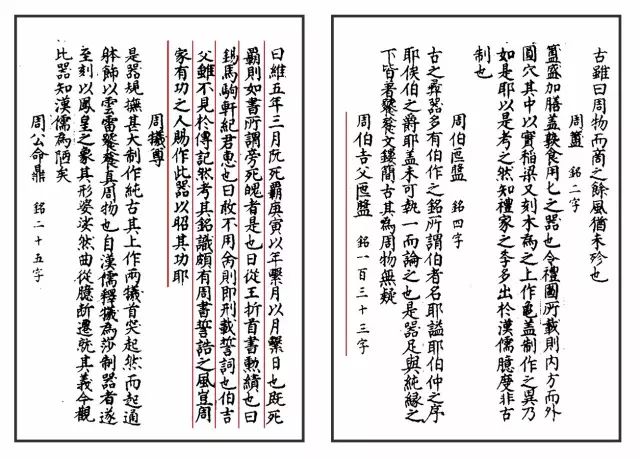 古雖曰周物而商之餘風猶未殄也
周簠 銘二字
簠盛加膳蓋熟食用匕之器也今禮圖所載則内方而外
圓穴其中以實稻粱又刻木為之上作龜蓋制作之異乃
如是耶以是考之然知禮家之學多出於漢儒臆度非古
制也
周伯匜盤 銘四字
古之彝器多有伯作之銘所謂伯者名耶謚耶伯仲之序
耶侯伯之爵耶蓋未可執一而論之也是器足與純緣之
下皆著饕餮文鏤簡古其為周物無疑
周伯吉父匜盤 銘一百三十三字
曰維五年三月既死霸庚寅以年繫月以月繫日也既死
霸則如書所謂旁死魄者是也曰從王折首書勲績也曰
錫馬駒軒紀君惠也曰敢不用令則即刑載誓詞也伯吉
父雖不見於傳記然考其銘識頗有周書誓誥之風豈周
家有功之人賜作此器以昭其功耶
周犧尊
是器規撫甚大制作純古其上作兩犧首突起然而起通
躰飾以雲雷饕餮真周物也自漢儒釋犧為莎制器者遂
至刻以鳳皇之象其形婆娑然曲從臆斷遷就其義今觀
比器知漢儒為陋矣
周公命鼎 銘二十五字